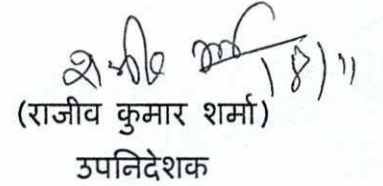 (राजीव कुमार शर्मा)
उपनिदेशक